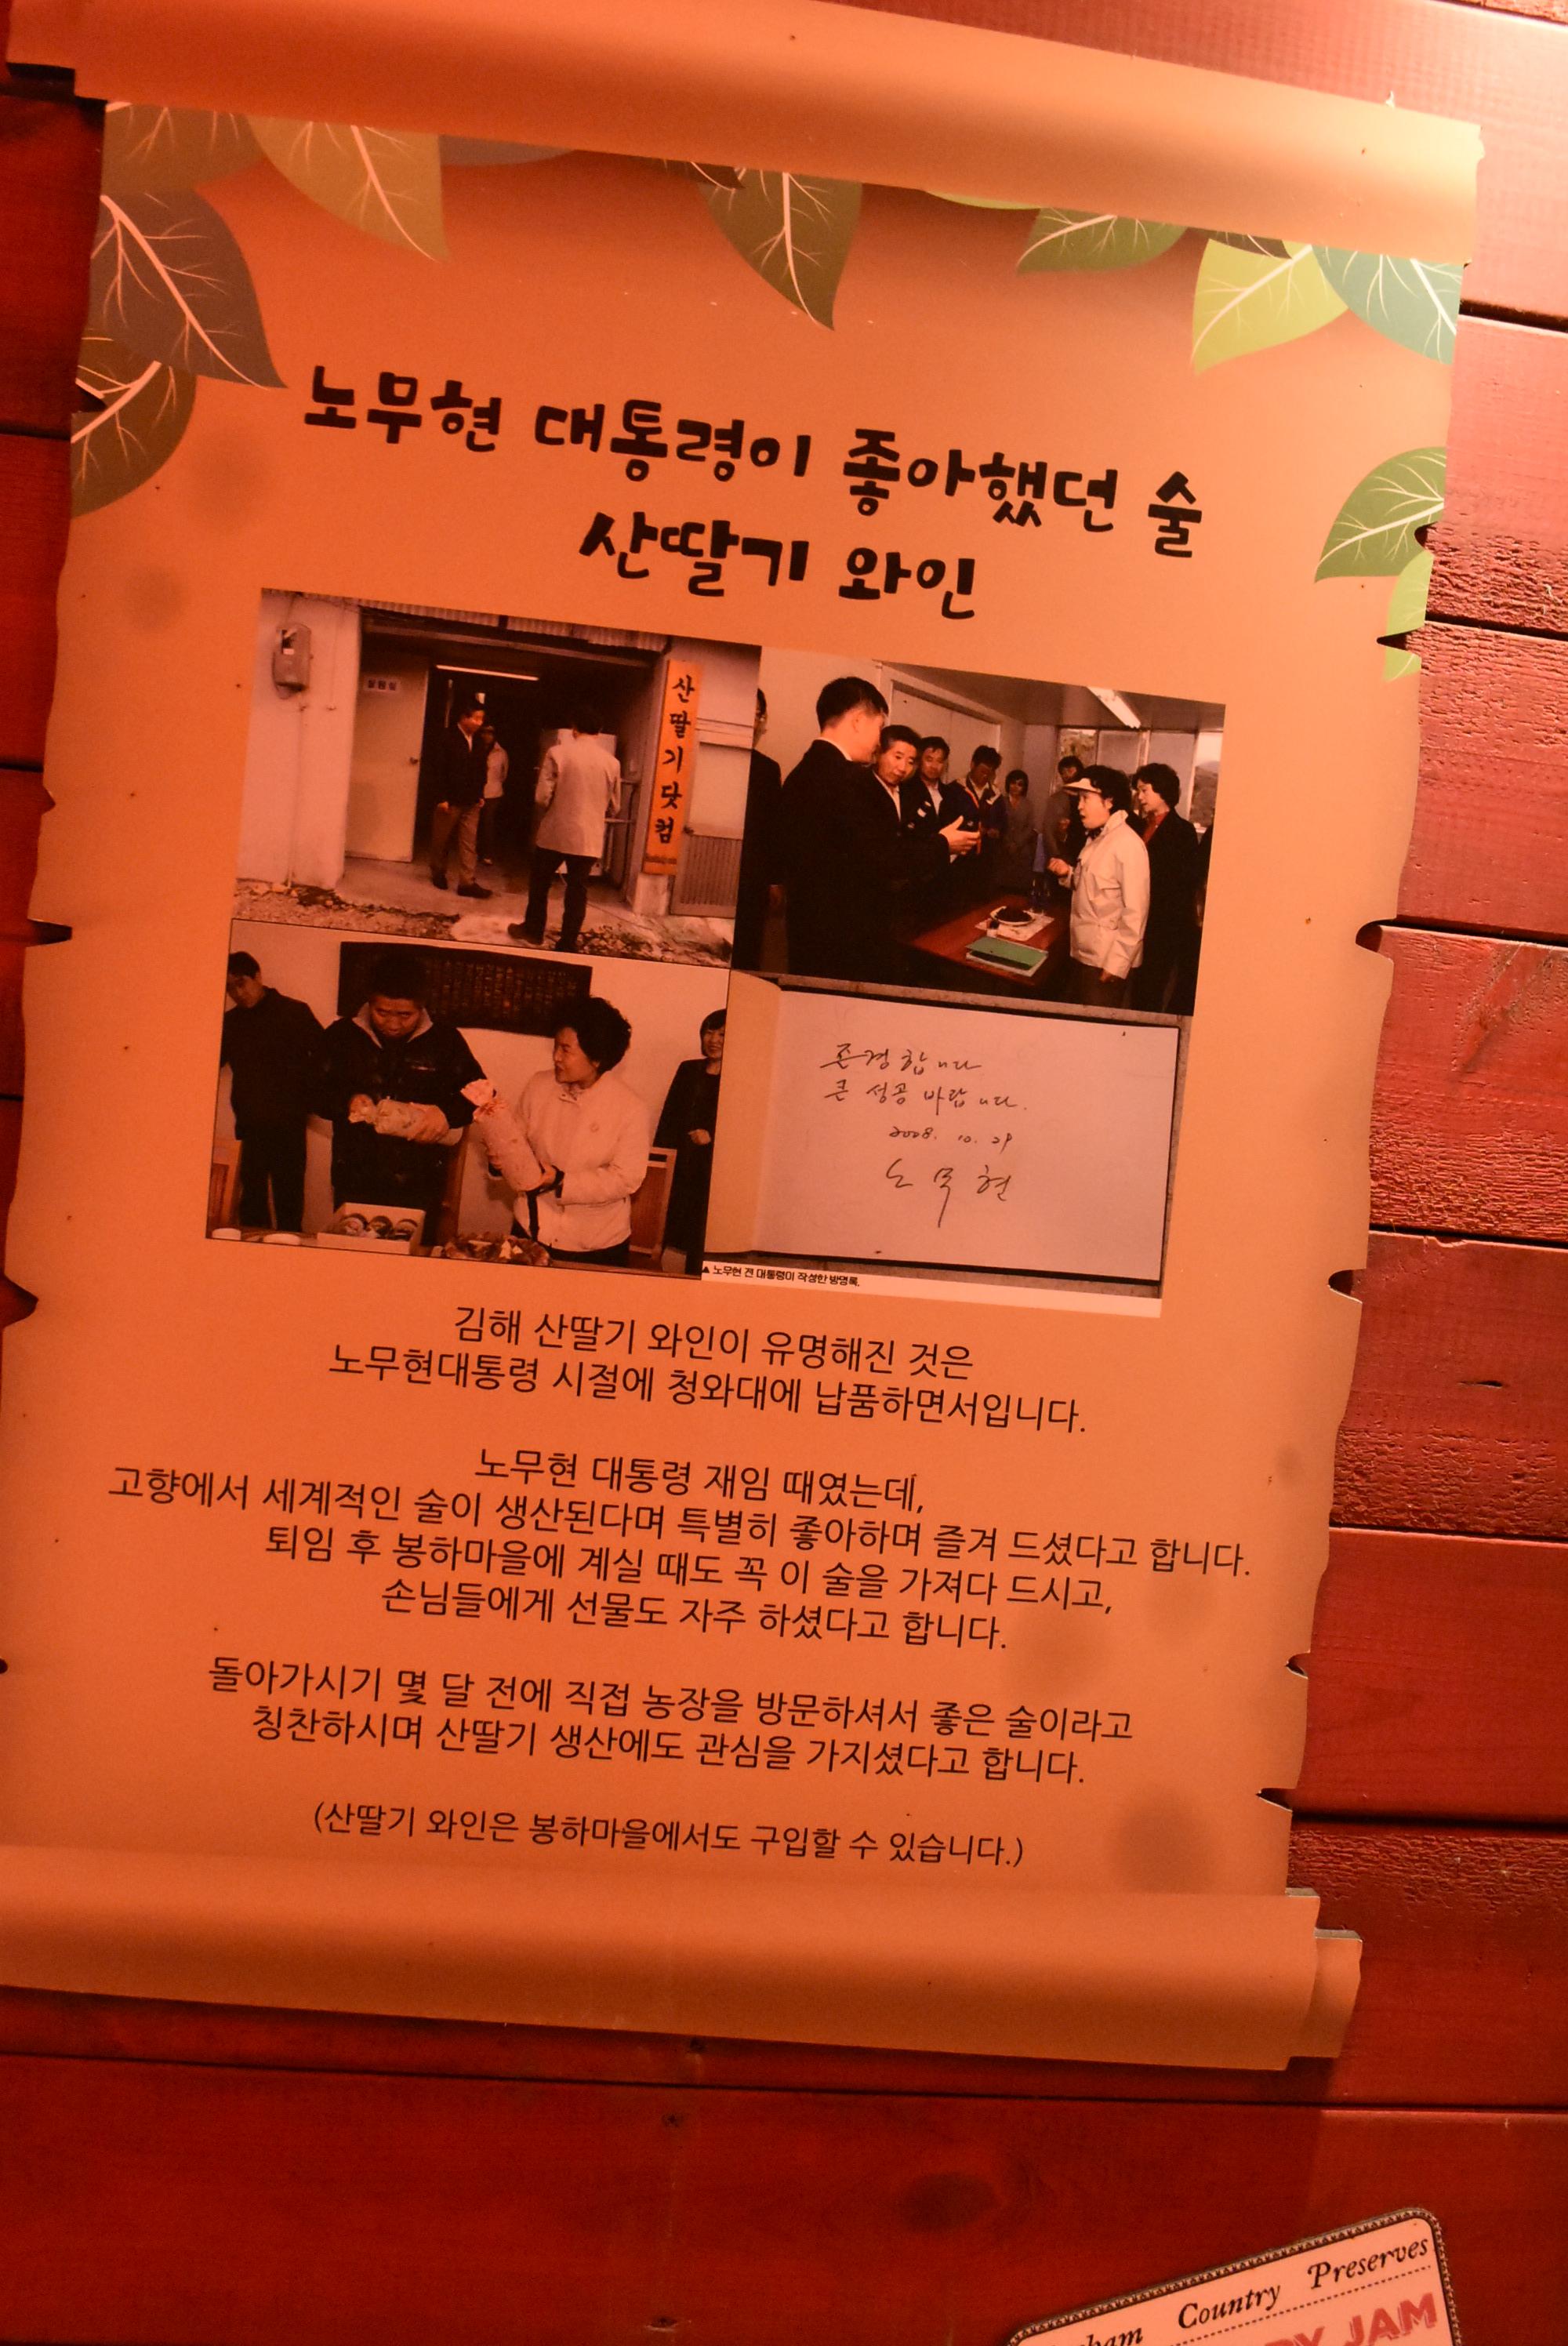 노무현 대통령이 좋아했던 술
산딸기 와인
산딸기닷컴
존경합니다
큰 성공 바랍니다.
2008. 10. 29
노무현
▲ 노무현 전 대통령이 작성한 방명록.
김해 산딸기 와인이 유명해진 것은
노무현대통령 시절에 청와대에 납품하면서입니다.
노무현 대통령 재임 때였는데,
고향에서 세계적인 술이 생산된다며 특별히 좋아하며 즐겨 드셨다고 합니다.
퇴임 후 봉하마을에 계실 때도 꼭 이 술을 가져다 드시고,
손님들에게 선물도 자주 하셨다고 합니다.
돌아가시기 몇 달 전에 직접 농장을 방문하셔서 좋은 술이라고
칭찬하시며 산딸기 생산에도 관심을 가지셨다고 합니다.
(산딸기 와인은 봉하마을에서도 구입할 수 있습니다.)
Country Preserves
JAM